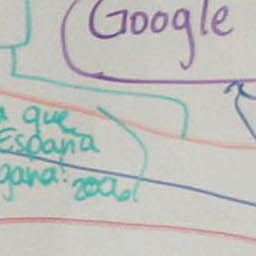 Google
a que
España
gana!